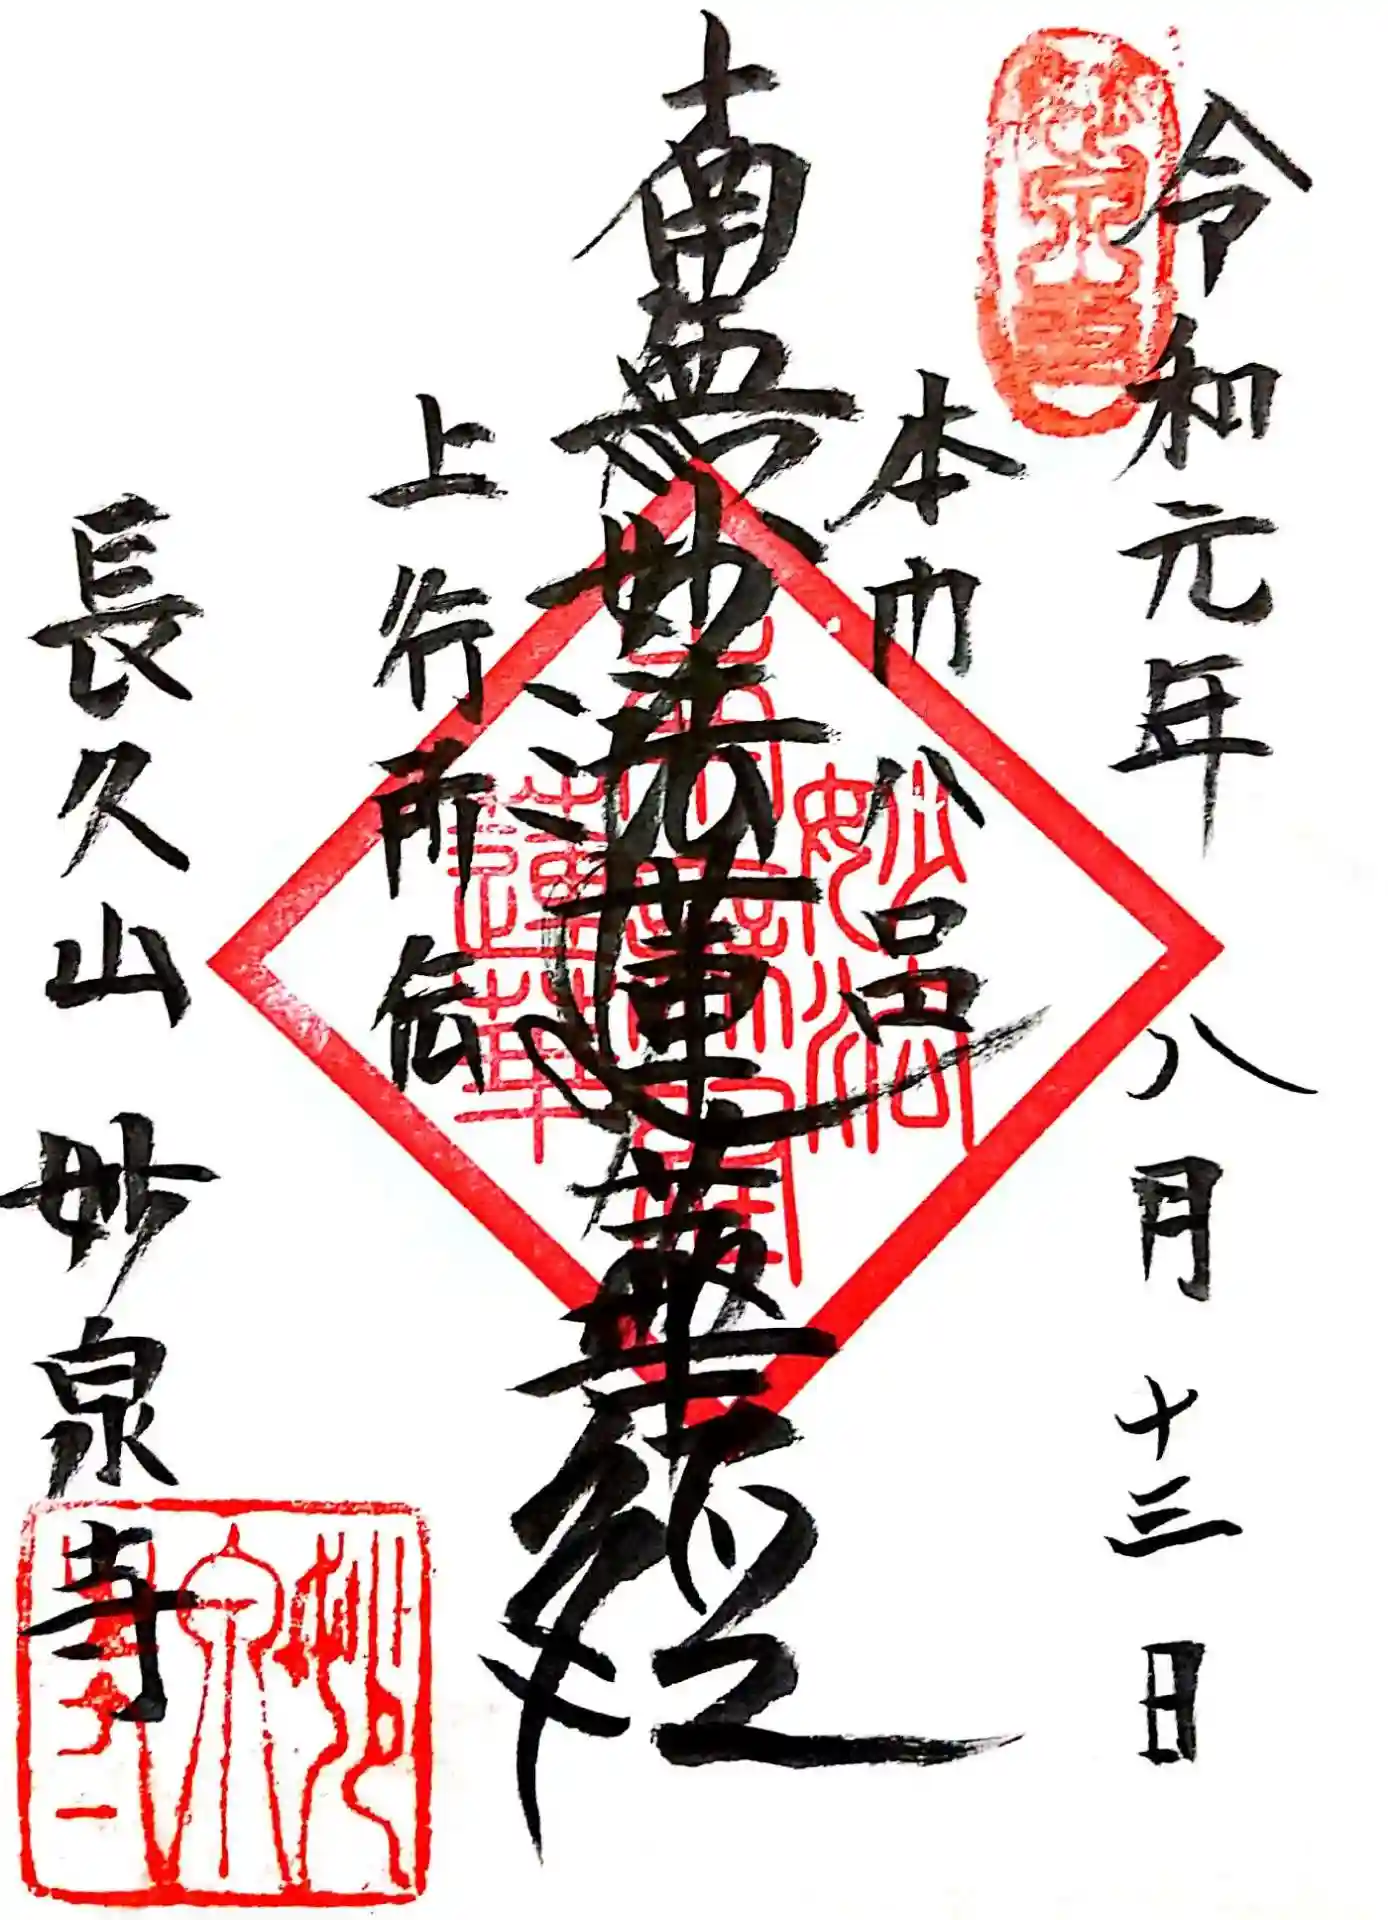 令和元年八月十三日
本門八品
南無妙法蓮華経
上行所伝
長久山 妙泉寺
妙法
蓮華